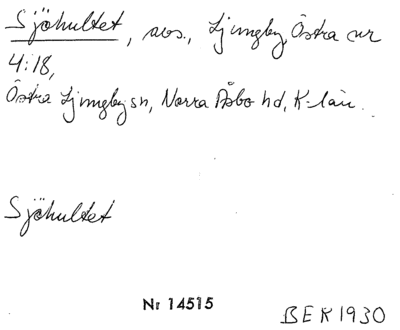 Sjöhultet, avs., Ljungby, Östra nr
4:18,
Östra Ljungby sn, Norra Åsbo hd, K-län.
Sjöhultet
Nr 14515
BEK1930